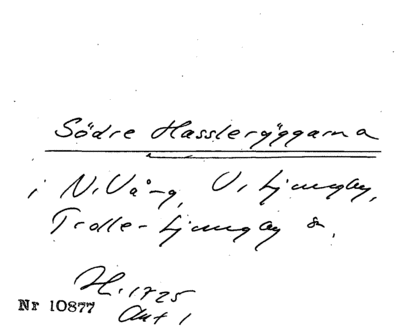 Södre Hassleröggarna
i N. Vång, V. Ljungby,
Trolle-Ljungby s.
H. 1725
Akt 1
Nr 10877